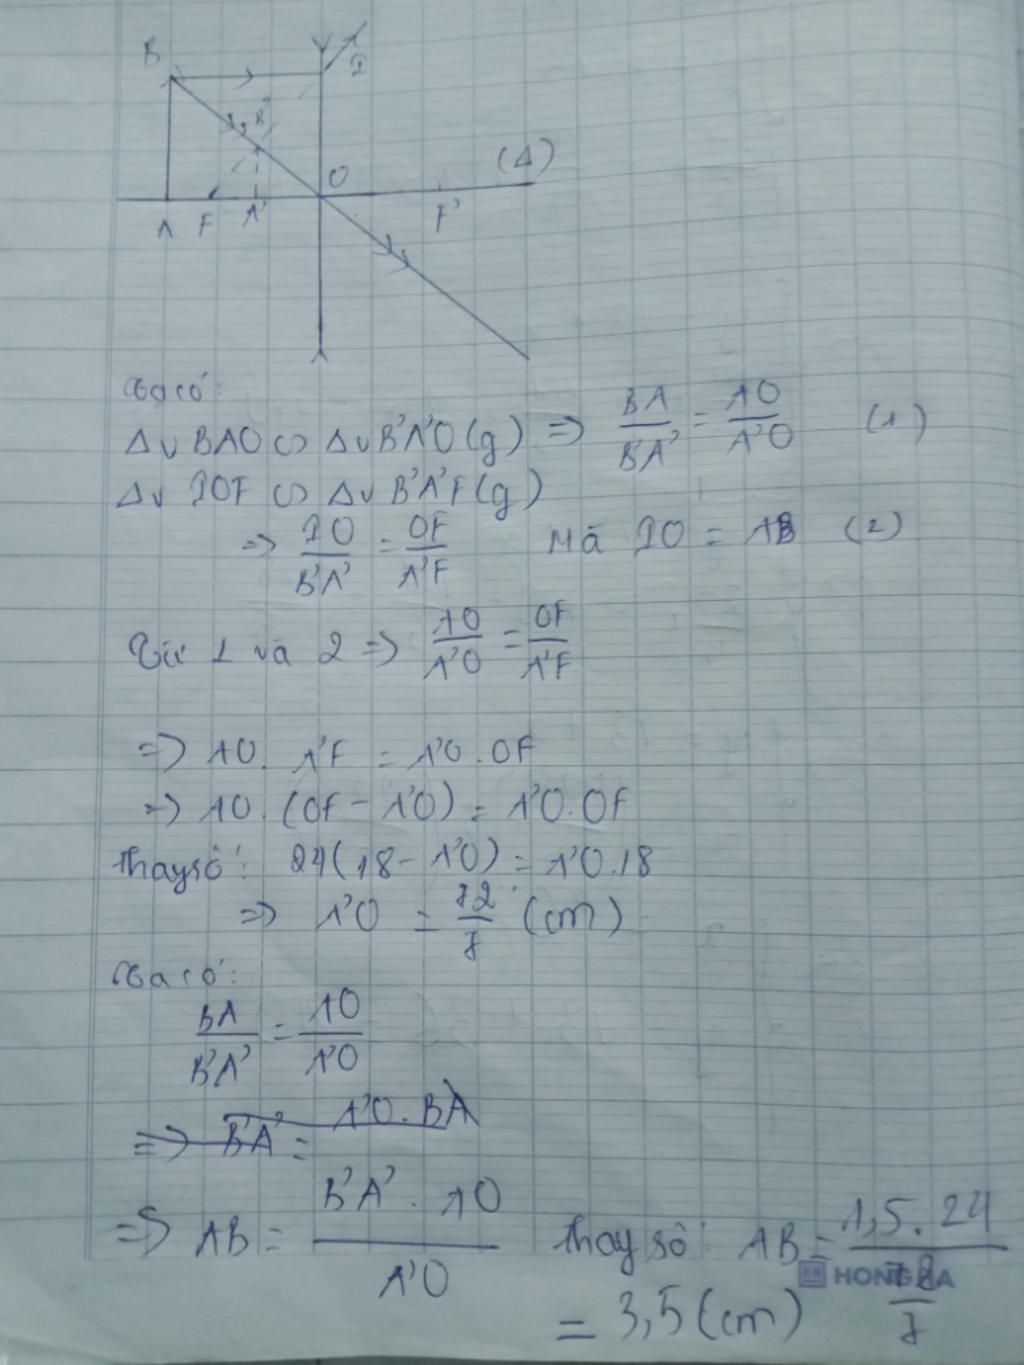 B
I
B'
O
(Δ)
A F A' F'
Ta có:
Δv BAO ∽ Δv B'A'O (g) => BA/B'A' = AO/A'O (1)
Δv IOF ∽ Δv B'A'F (g)
=> IO/B'A' = OF/A'F Mà IO = AB (2)
Từ 1 và 2 => AO/A'O = OF/A'F
=> AO. A'F = A'O.OF
=> AO.(OF - A'O) = A'O.OF
Thay số: 24(18 - A'O) = A'O.18
=> A'O = 72/7 (cm)
Ta có:
BA/B'A' = AO/A'O
=> B'A' = A'O.BA
=> AB = B'A'.AO/A'O Thay số: AB = 1,5.24/72/7
HONG HA
= 3,5 (cm)